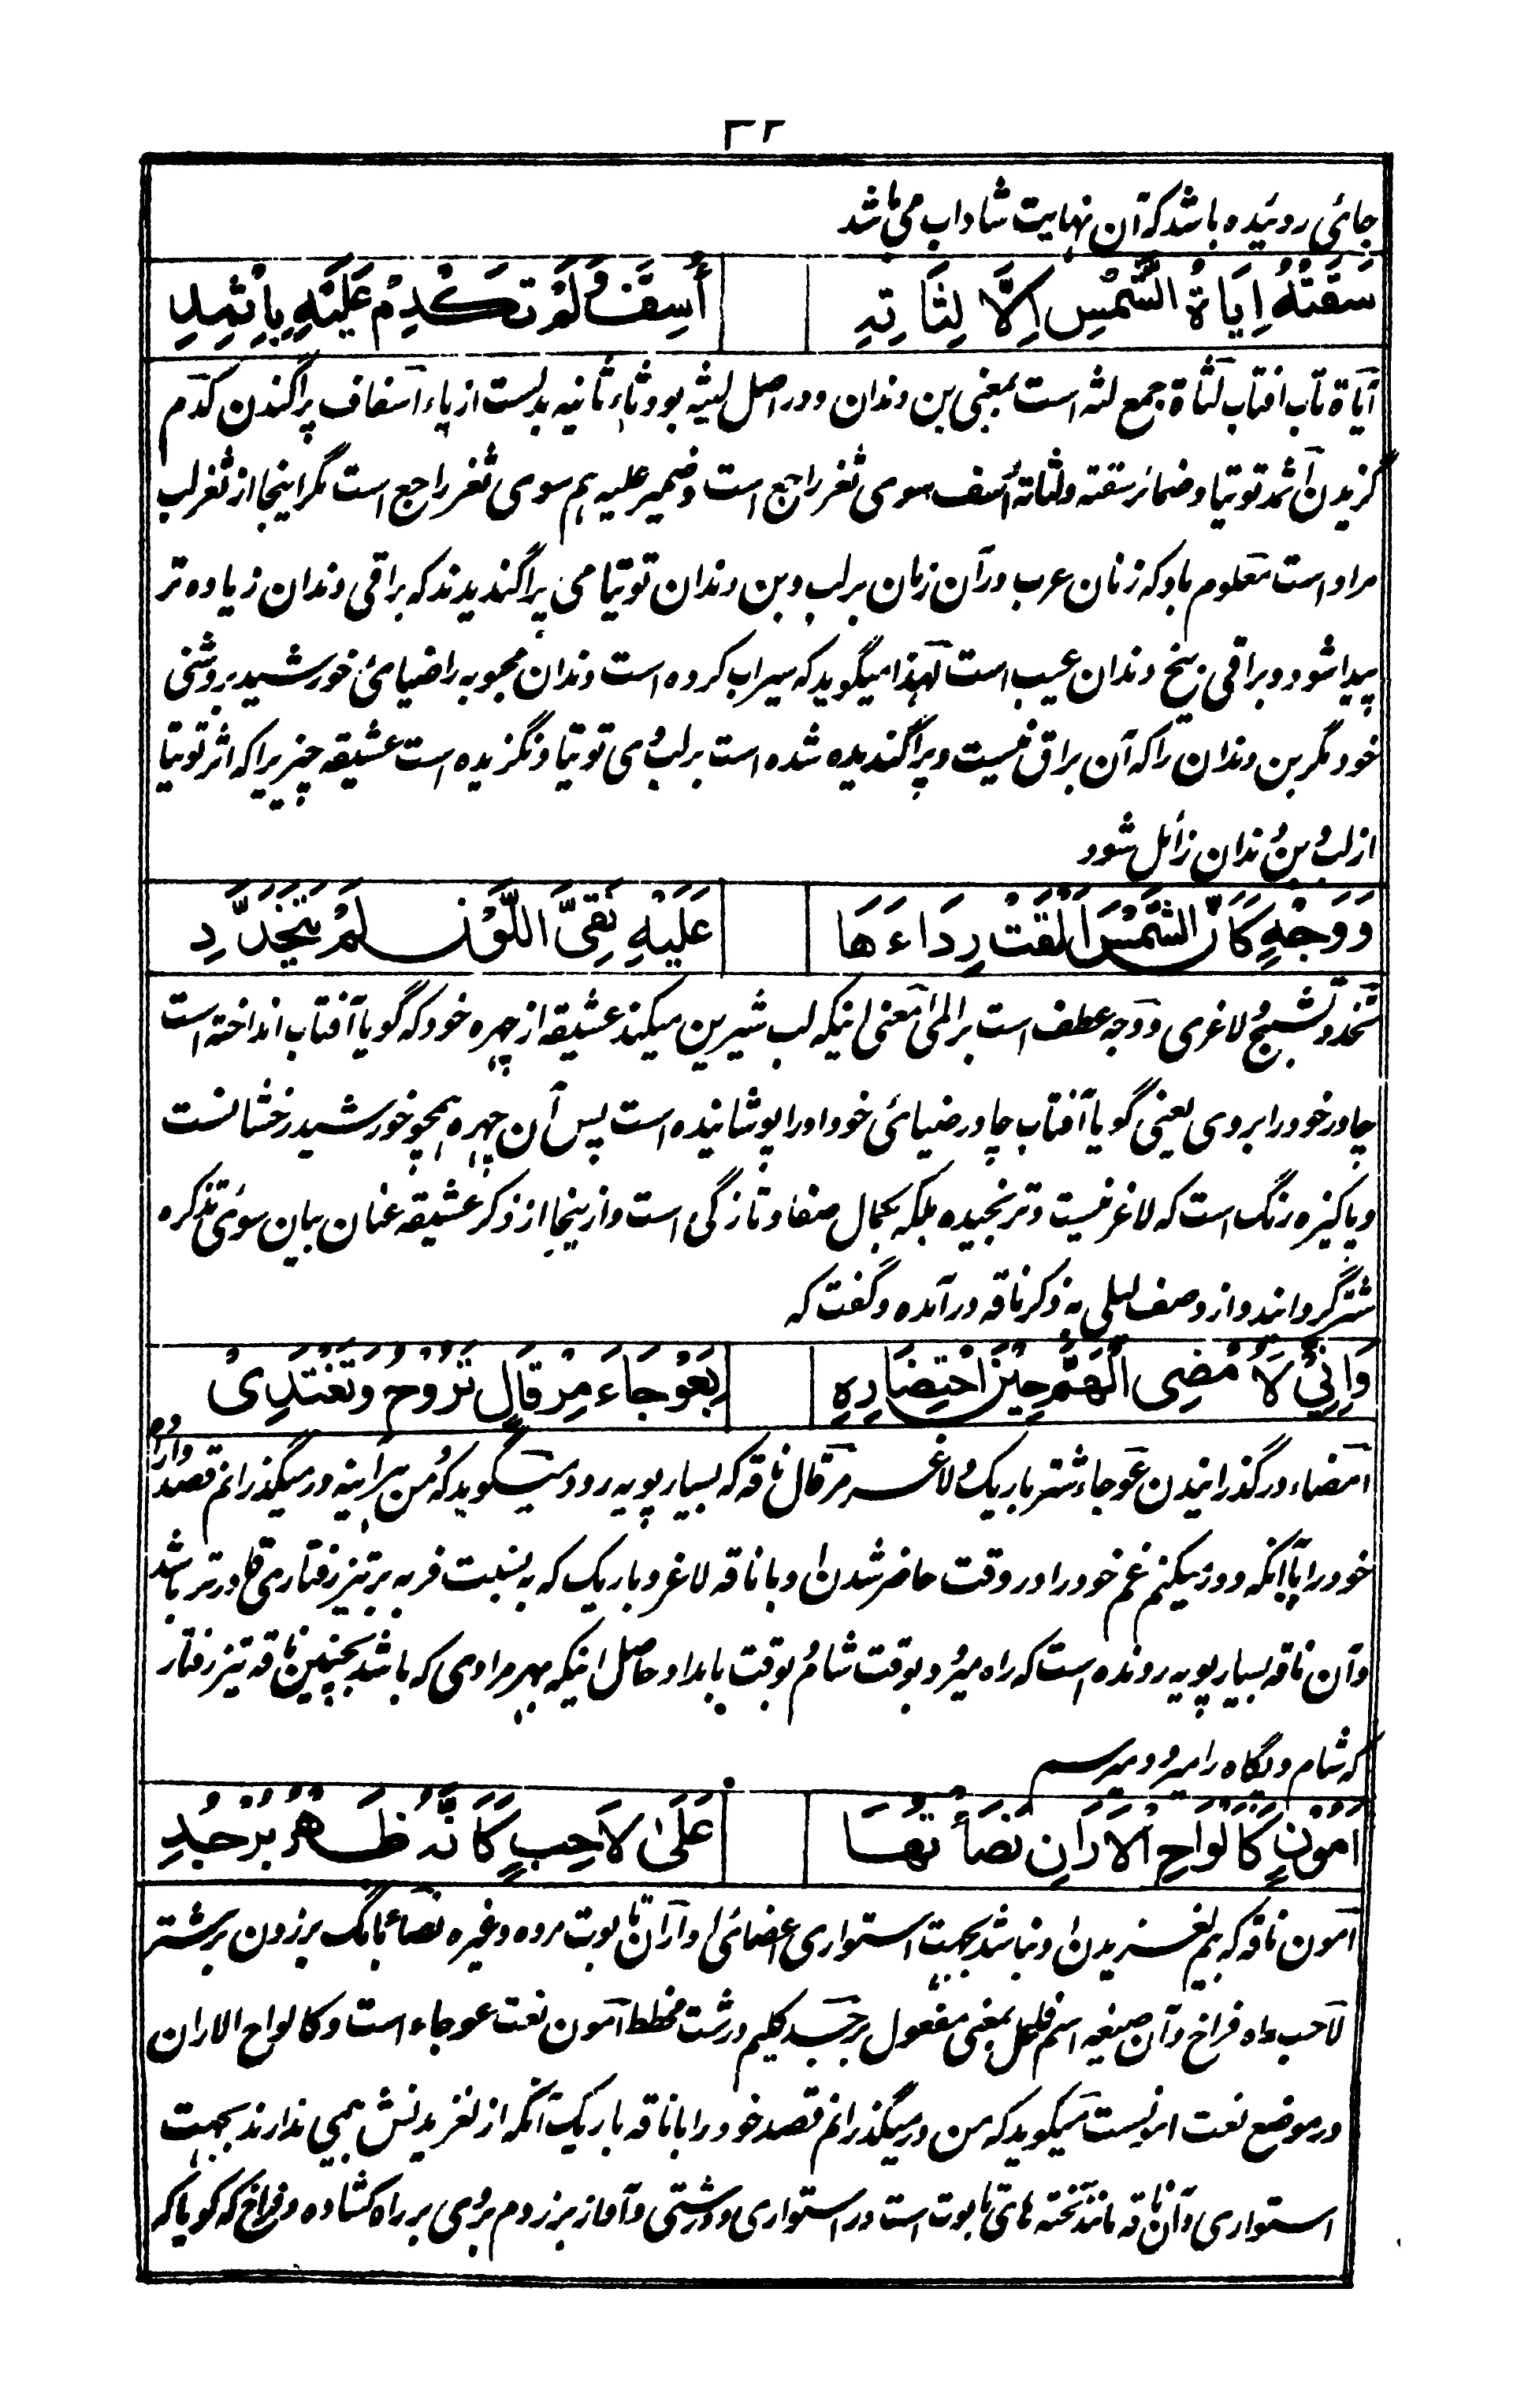 ۳۲
جائی روئیده باشد که آن نهایت شاداب می باشد
سَقَتْهُ اِیَاةُ الشَّمْسِ اِلَّا لِثَاتِهِ اُسِفَّ وَلَمْ تَکْدِمْ عَلَیْهِ بِاِثْمِدِ
آیاة تاب افتاب لثاة جمع لثه است بمعنی بن دندان و در اصل لثیه بود ثاء ثانیه بدلست از یاء اسفاف پراگندن کدم
گزیدن اثمد توتیا و ضمائر سقته و لثاته و اسف سوی ثغر راجع است و ضمیر علیه هم سوی ثغر راجع است مگر اینجا از ثغر لب
مراد است معلوم باد که زنان عرب در آن زمان بر لب و بن دندان توتیا می پراگندیدند که براقی دندان زیاده تر
پیدا شود و براقی بیخ دندان عیب است لهذا میگوید که سیراب کرده است دندان محبوبه را ضیائی خورشید بروشنی
خود مگر بن دندان را که آن براق نیست و پراگندیده شده است بر لب وی توتیا و نگزیده است عشیقه چیزیرا که اثر توتیا
از لب و بن دندان زائل شود
وَوَجْهٍ کَاَنَّ الشَّمْسَ اَلْقَتْ رِدَاءَهَا عَلَیْهِ نَقِیَّ اللَّوْنِ لَمْ یَتَخَدَّدِ
تخدد تشنج و لاغری و وجه عطف است بر المی معنی اینکه لب شیرین میکند عشیقه از چهره خود که گویا آفتاب انداخته است
چادر خود را بروی یعنی گویا آفتاب چادر ضیائی خود او را پوشانیده است پس آن چهره همچو خورشید رخشانست
و پاکیزه رنگ است که لاغر نیست و ترنجیده بلکه بکمال صفا و تازگی است و ازینجا از ذکر عشیقه عنان بیان سوی تذکره
شتر گردانید و از وصف لیلی به ذکر ناقه در آمده و گفت که
وَاِنِّیْ لَاُمْضِی الْهَمَّ حِیْنَ احْتِضَارِهِ بِعَوْجَاءَ مِرْقَالٍ تَرُوْحُ وَتَغْتَدِیْ
امضاء در گذرانیدن عوجاء شتر باریک و لاغر مرقال ناقه که بسیار پویه رود میگوید که من هرآینه در میگذرانم قصد و اراده
خود را یا آنکه دور میکنم غم خود را در وقت حاضر شدن او با ناقه لاغر و باریک که به نسبت فربه بر تیز رفتاری قادرتر باشد
و آن ناقه بسیار پویه رونده است که راه میرود بوقت شام و بوقت بامداد حاصل اینکه بهر مرادی که باشد بچنین ناقه تیز رفتار
که شام و پگاه را میرود میرسم
اَمُوْنٍ کَاَلْوَاحِ الْاَرَانِ نَصَأْتُهَا عَلَی لَاحِبٍ کَاَنَّهُ ظَهْرُ بُرْجُدِ
آمون ناقه که بیم لغزیدن او نباشد بجهت استواری اعضائی او آران تابوت مرده و غیره نصاء بانگ بر زدن بر شتر
لاحب راه فراخ و آن صیغه اسم فاعل بمعنی مفعول برجد گلیم درشت مخطط آمون نعت عوجاء است و کالواح الاران
در موضع نعت امونست میگوید که من در میگذرانم قصد خود را با ناقه باریک آنکه از لغزیدنش بیمی ندارند بجهت
استواری و آن ناقه مانند تخته های تابوت است در استواری و درشتی و آواز بر زدم بروی بر راه کشاده و فراخ که گویا که